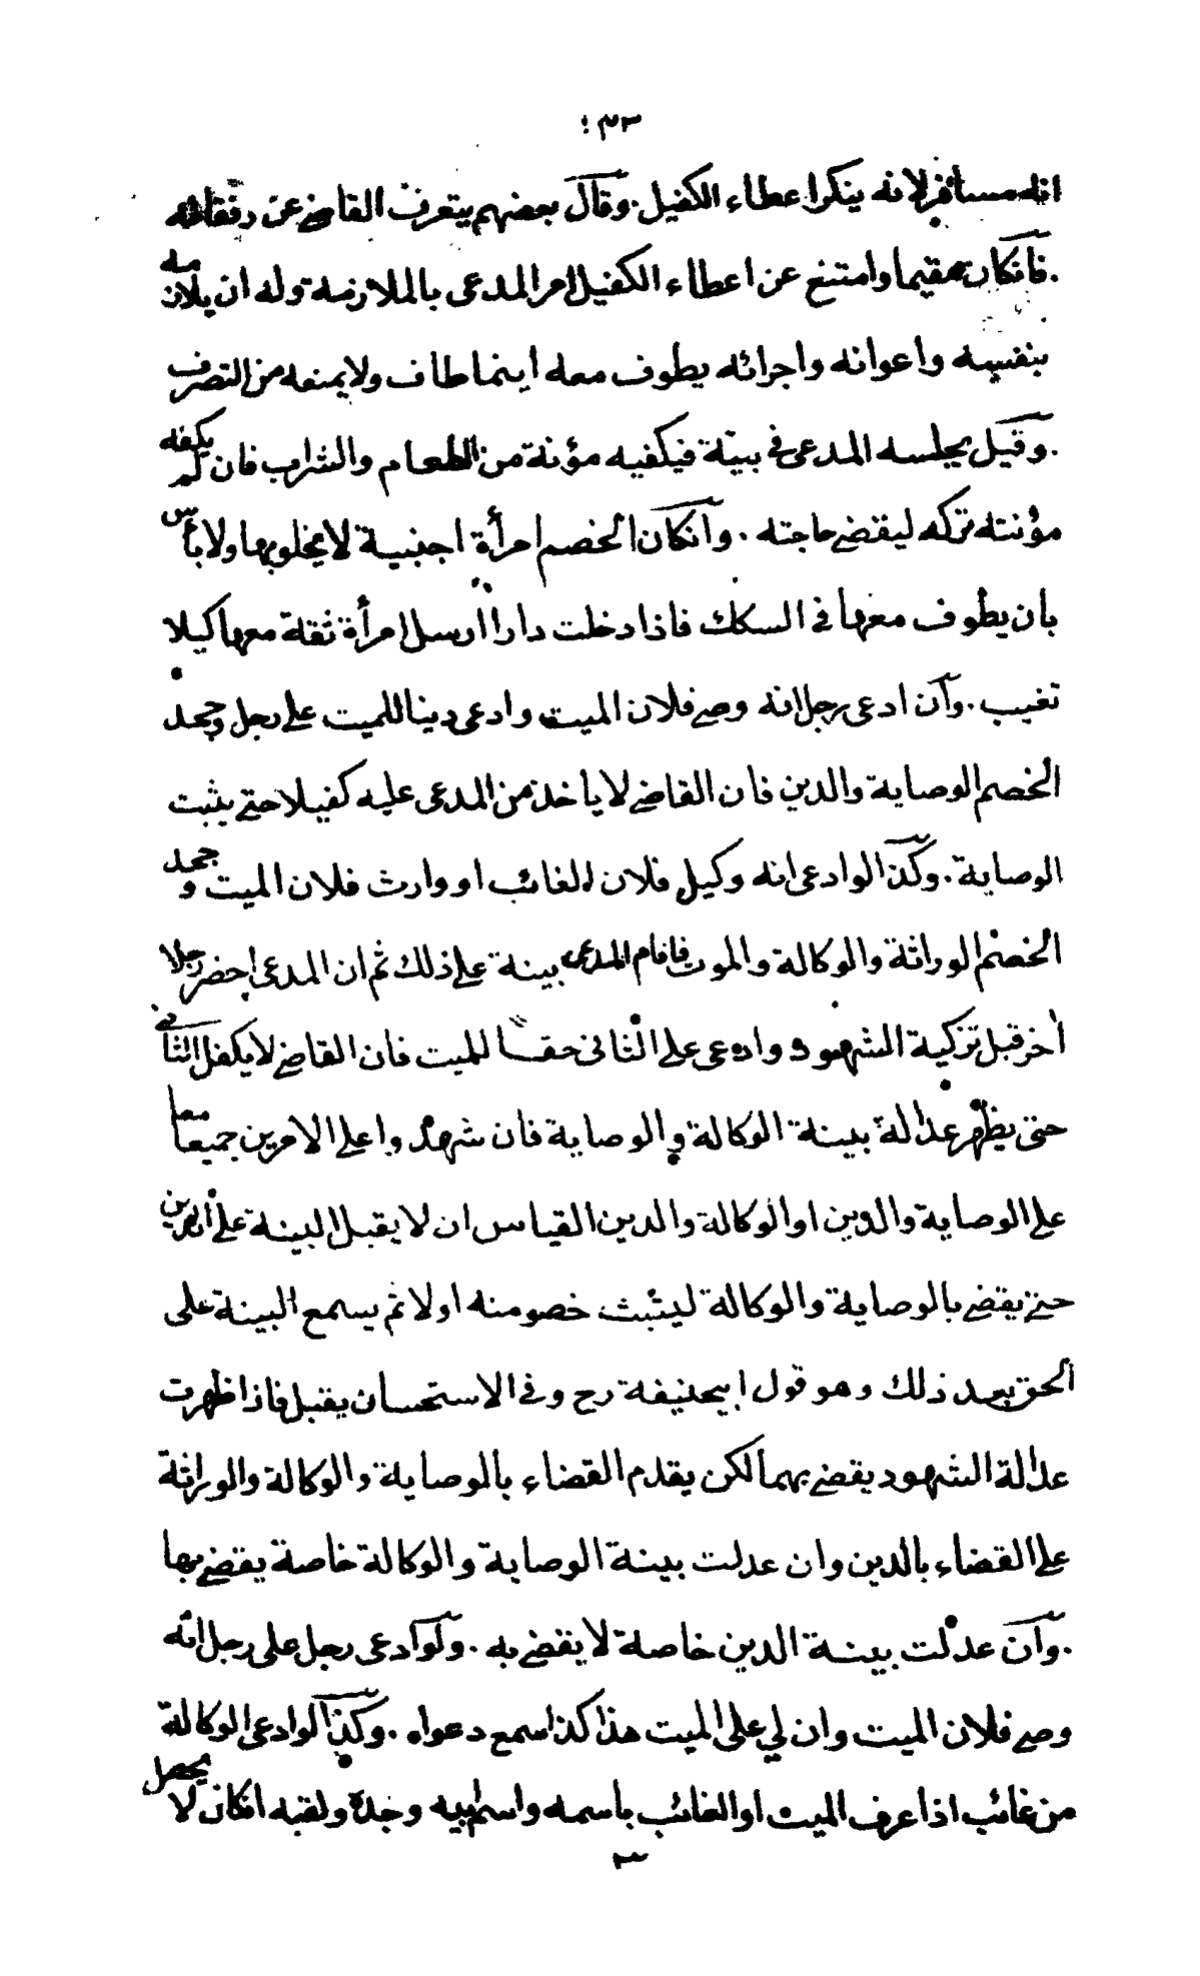 ٤٣٣
انه مسافر لانه ينكر اعطاء الكفيل. وقال بعضهم يتعرف القاضي عن رفقائه
. فانكان مقيما وامتنع عن اعطاء الكفيل امر المدعي بالملازمة وله ان يلازمه
بنفسه واعوانه واجرائه يطوف معه اينما طاف ولا يمنعه من التصرف
. وقيل يجلسه المدعى في بيته فيكفيه مؤنة من الطعام والشراب فان لم يكفه
مؤنته تركه ليقضي حاجته . وانكان الخصم امرأة اجنبية لا يخلو بها ولا بأس
بان يطوف معها في السكك فاذا دخلت دارا ارسل امرأة ثقة معها كيلا
تغيب . وان ادعى رجل انه وصي فلان الميت وادعى دينا للميت على رجل وجحد
الخصم الوصاية والدين فان القاضي لا يأخذ من المدعى عليه كفيلا حتى يثبت
الوصاية . وكذا لو ادعى انه وكيل فلان الغائب او وارث فلان الميت وجحد
الخصم الوراثة والوكالة والموت فاقام المدعى بينة على ذلك ثم ان المدعى احضر رجلا
أخر قبل تزكية الشهود وادعى على الثانى حقا للميت فان القاضي لا يكفل الثاني
حتى يظهر عدالة بينة الوكالة والوصاية فان شهدوا على الامرين جميعا معا
على الوصاية والدين او الوكالة والدين القياس ان لا يقبل البينة على الامرين
حتى يقضي بالوصاية والوكالة ليثبت خصومته اولا ثم يسمع البينة على
الحق بعد ذلك وهو قول ابيحنيفة رح وفى الاستحسان يقبل فاذا ظهرت
عدالة الشهود يقضي بهما لكن يقدم القضاء بالوصاية والوكالة والوراثة
على القضاء بالدين وان عدلت بينة الوصاية والوكالة خاصة يقضي بها
. وان عدلت بينة الدين خاصة لا يقضي به . ولو ادعى رجل على رجل انه
وصي فلان الميت وان لي على الميت هذا كذا سمع دعواه . وكذا لو ادعى الوكالة
من غائب اذا عرف الميت او الغائب باسمه واسم ابيه وجده ولقبه انكان لا يحصل